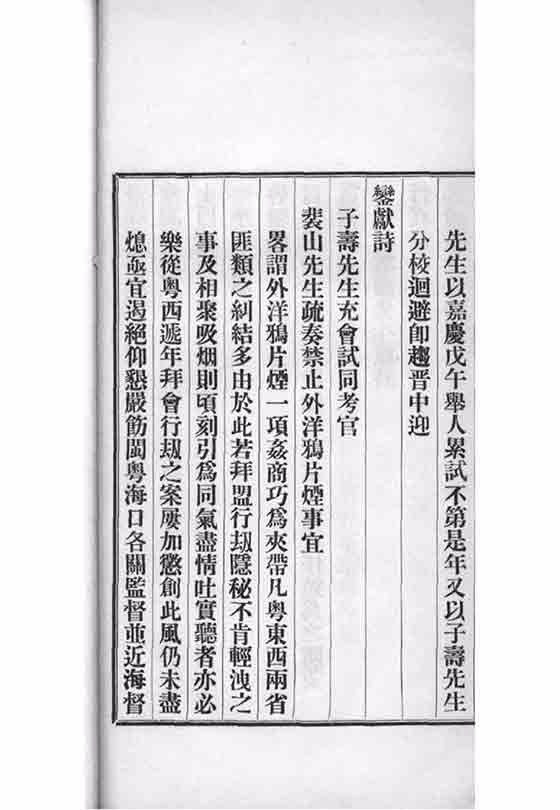 先生以嘉慶戊午舉人累試不第是年又以子壽先生
分校迴避卽趨晋中迎
鑾獻詩
子壽先生充會試同考官
裴山先生疏奏禁止外洋鴉片煙事宜
畧謂外洋鴉片煙一項姦商巧爲夾帶凡粵東西兩省
匪類之糾結多由於此若拜盟行刼隱秘不肯輕洩之
事及相聚吸烟則頃刻引爲同氣盡情吐實聽者亦必
樂從粵西遞年拜會行刼之案屢加懲創此風仍未盡
熄亟宜遏絕仰懇嚴筯閩粵海口各關監督並近海督